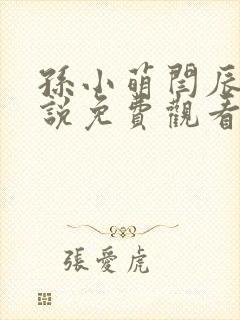 孫小萌閆辰
說免費觀看
張愛虎